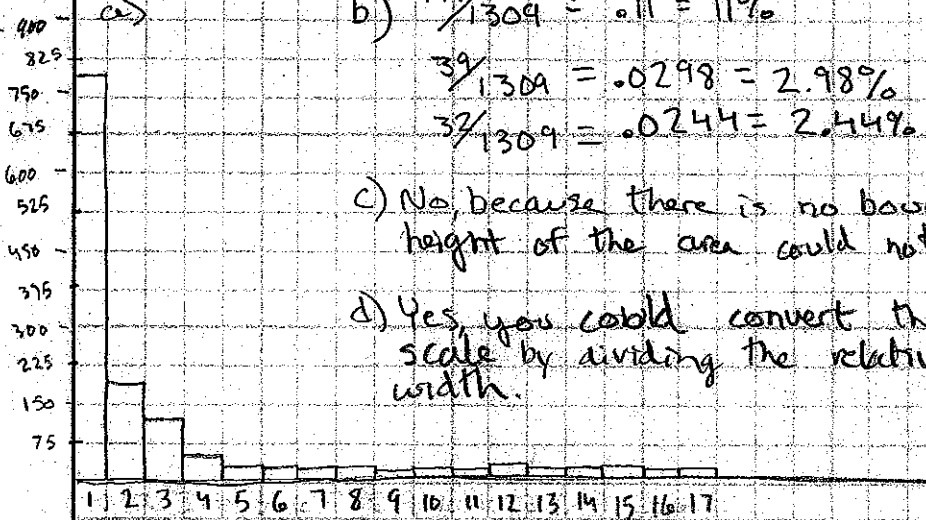 a)
900
825
750
675
600
525
450
375
300
225
150
75
1 2 3 4 5 6 7 8 9 10 11 12 13 14 15 16 17
b) /1309 = .11 = 11%
39/1309 = .0298 = 2.98%
32/1309 = .0244 = 2.44%
c) No, because there is no
height of the area could not
d) Yes, you cobld convert th
scale by dividing the relativ
width.